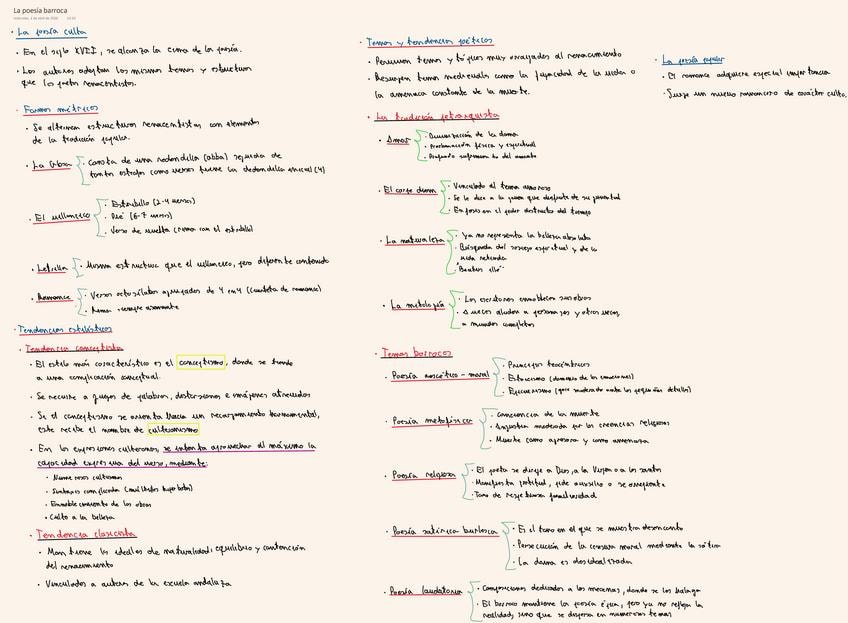 La poesía barroca
· La poesía culta
· En el siglo XVII, se alcanza la cima de la poesía.
· Los autores adoptan los mismos temas y estructuras
que los poetas renacentistas.
· Formas métricas
· Se alternan estructuras renacentistas con elementos
de la tradición popular.
· La
· Consta de una redondilla (abba) seguida de
tantas estrofas como versos tiene la redondilla inicial (4)
· El villancico
· Estribillo (2-4 versos)
· Pie (6-7 versos)
· Verso de vuelta (rima con el estribillo)
· Letrilla
· Misma estructura que el villancico, pero diferente contenido
· Romance
· Versos octosílabos agrupados de 4 en 4 (cuarteta de romance)
· Rima siempre asonante
· Tendencias estilísticas
· Tendencia conceptista
· El estilo más característico es el conceptismo, donde se tiende
a una complicación conceptual.
· Se recurre a juegos de palabras, distorsiones e imágenes atrevidas
· Si el conceptismo se orienta hacia un recargamiento ornamental,
este recibe el nombre de culteranismo
· En las expresiones culteranas, se intenta aprovechar al máximo la
capacidad expresiva del verso, mediante:
· Numerosos cultismos
· Sintaxis complicada (múltiples hipérbatos)
· Ennoblecimiento de las obras
· Culto a la belleza
· Tendencia clasicista
· Mantiene los ideales de naturalidad, equilibrio y contención
del renacimiento
· Vinculados a autores de la escuela andaluza
· Temas y tendencias poéticas
· Perviven temas y tópicos muy arraigados al renacimiento
· Resurgen temas medievales como la fugacidad de la vida o
la amenaza constante de la muerte.
· La tradición petrarquista
· Amor
· Divinización de la dama
· Proclamación física y espiritual
· Profundo sufrimiento del amante
· El carpe diem
· Vinculado al tema amoroso
· Se le dice a la joven que disfrute de su juventud
· Énfasis en el poder destructor del tiempo
· La naturaleza
· Ya no representa la belleza absoluta
· Búsqueda del sosiego espiritual y de la
vida retirada
· "Beatus ille"
· La mitología
· Los escritores ennoblecen sus obras
· A veces aluden a personajes y otras veces,
a mundos completos
· Temas barrocos
· Poesía - moral
· Principios
· Estoicismo (dominio de las emociones)
· Epicureísmo (goce moderado ante los pequeños detalles)
· Poesía metafísica
· Conciencia de la muerte
· Angustia moderada por las creencias religiosas
· Muerte como y como amenaza
· Poesía religiosa
· El poeta se dirige a Dios, a la Virgen o a los santos
· Manifiesta gratitud, pide auxilio o se arrepiente
· Tono de respetuosa familiaridad
· Poesía satírica burlesca
· Es el tono en el que se muestra desencanto
· Persecución de la censura moral mediante la sátira
· La dama es desidealizada
· Poesía laudatoria
· Composiciones dedicadas a los mecenas, donde se los halaga
· El barroco mantiene la poesía épica, pero ya no refleja la
realidad, sino que se dispersa en numerosos temas
· La poesía popular
· El romance adquiere especial importancia
· Surge un nuevo romancero de carácter culto.